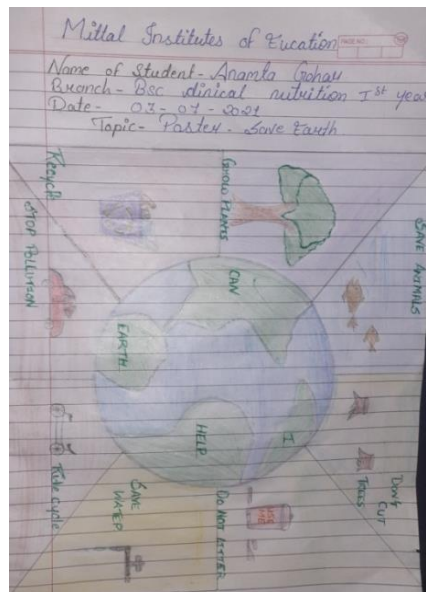 Mittal Institutes of Eucation
PAGE NO.
Name of Student - Anamta Gohar
Branch - Bsc clinical nutrition Ist year
Date - 07-07-2021
Topic - Poster - Save Earth
Recycle
STOP POLLUTION
GROW PLANTS
SAVE ANIMALS
CAN
EARTH
I
HELP
DON'T
CUT
TREES
DO NOT LITTER
USE
ME
SAVE
WATER
Ride cycle